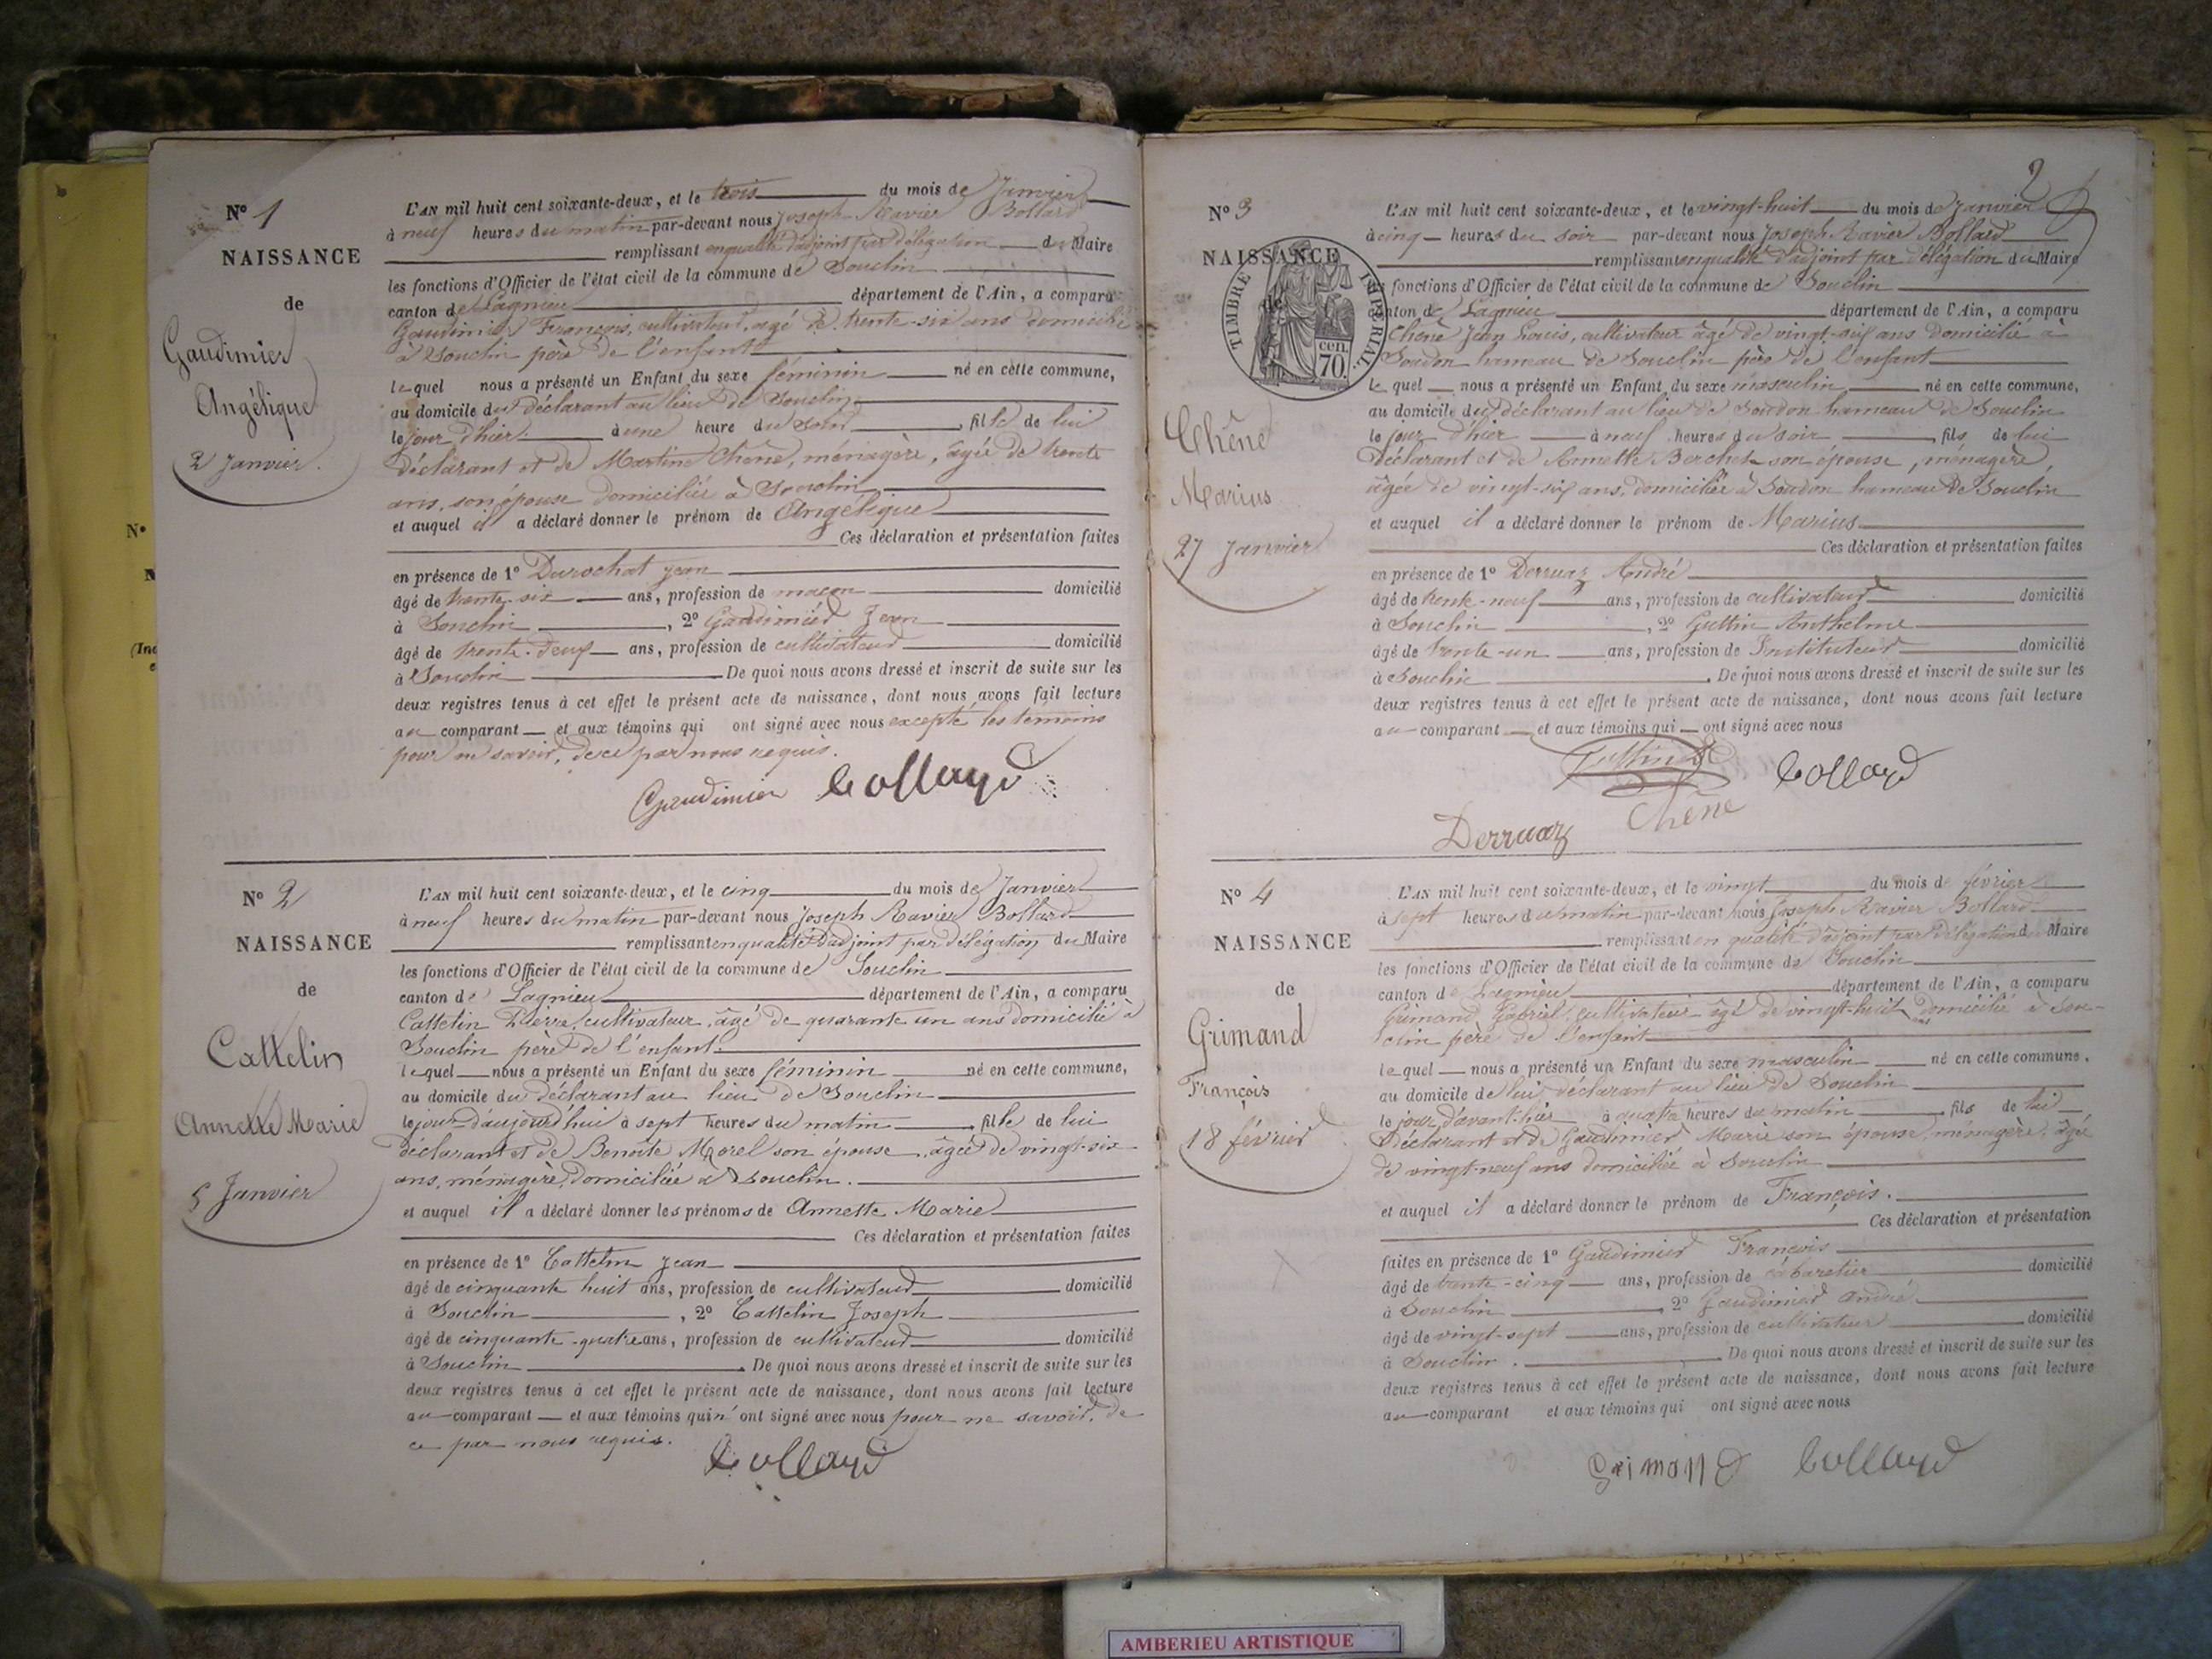 N° 1
NAISSANCE
de
Gaudimier
Angélique
2 Janvier.
L'AN mil huit cent soixante-deux, et le trois du mois de Janvier
à neuf heures du matin par-devant nous Joseph Xavier Bollard
remplissant en qualité d'adjoint par délégation du Maire
les fonctions d'Officier de l'état civil de la commune de Souclin
canton de Lagnieu département de l'Ain, a comparu
Gaudimier François, cultivateur, agé de trente-six ans domicilié
à Souclin père de l'enfant
lequel nous a présenté un Enfant du sexe féminin né en cette commune,
au domicile du déclarant au lieu de Souclin
le jour d'hier à une heure du soir, fille de lui
déclarant et de Martine Chêne, ménagère, âgée de trente
ans, son épouse domiciliée à Souclin
et auquel il a déclaré donner le prénom de Angélique
Ces déclaration et présentation faites
en présence de 1° Durochat Jean
âgé de trente-six ans, profession de maçon domicilié
à Souclin, 2° Gaudimier Jean
âgé de trente-deux ans, profession de cultivateur domicilié
à Souclin. De quoi nous avons dressé et inscrit de suite sur les
deux registres tenus à cet effet le présent acte de naissance, dont nous avons fait lecture
au comparant et aux témoins qui ont signé avec nous excepté les témoins
pour ne savoir, de ce par nous requis.
Gaudimier Bollard
N° 2
NAISSANCE
de
Cattelin
Annette Marie
5 Janvier
L'AN mil huit cent soixante-deux, et le cinq du mois de Janvier
à neuf heures du matin par-devant nous Joseph Xavier Bollard
remplissant en qualité d'adjoint par délégation du Maire
les fonctions d'Officier de l'état civil de la commune de Souclin
canton de Lagnieu département de l'Ain, a comparu
Cattelin Pierre, cultivateur, âgé de quarante un ans domicilié à
Souclin père de l'enfant.
lequel nous a présenté un Enfant du sexe féminin né en cette commune,
au domicile du déclarant au lieu de Souclin
le jour d'aujourd'hui à sept heures du matin, fille de lui
déclarant et de Benoîte Morel son épouse, âgée de vingt-six
ans, ménagère, domiciliée à Souclin.
et auquel il a déclaré donner les prénoms de Annette Marie
Ces déclaration et présentation faites
en présence de 1° Cattelin Jean
âgé de cinquante huit ans, profession de cultivateur domicilié
à Souclin, 2° Cattelin Joseph
âgé de cinquante-quatre ans, profession de cultivateur domicilié
à Souclin. De quoi nous avons dressé et inscrit de suite sur les
deux registres tenus à cet effet le présent acte de naissance, dont nous avons fait lecture
au comparant et aux témoins qui n'ont signé avec nous pour ne savoir, de
ce par nous requis.
Bollard
2
N° 3
NAISSANCE
de
TIMBRE IMPERIAL.
cen.
70.
Chêne
Marius
27 Janvier
L'AN mil huit cent soixante-deux, et le vingt-huit du mois de Janvier
à cinq heures du soir par-devant nous Joseph Xavier Bollard
remplissant en qualité d'adjoint par délégation du Maire
fonctions d'Officier de l'état civil de la commune de Souclin
canton de Lagnieu département de l'Ain, a comparu
Chêne Jean Louis, cultivateur âgé de vingt-six ans domicilié à
Soudon hameau de Souclin père de l'enfant
lequel nous a présenté un Enfant du sexe masculin né en cette commune,
au domicile du déclarant au lieu de Soudon hameau de Souclin
le jour d'hier à neuf heures du soir, fils de lui
déclarant et de Annette Berchet son épouse, ménagère,
âgée de vingt-six ans, domiciliée à Soudon hameau de Souclin
et auquel il a déclaré donner le prénom de Marius
Ces déclaration et présentation faites
en présence de 1° Derruaz André
âgé de trente-neuf ans, profession de cultivateur domicilié
à Souclin, 2° Guttin Anthelme
âgé de trente-un ans, profession de Instituteur domicilié
à Souclin. De quoi nous avons dressé et inscrit de suite sur les
deux registres tenus à cet effet le présent acte de naissance, dont nous avons fait lecture
au comparant et aux témoins qui ont signé avec nous
Guttin Bollard
Derruaz Chêne
N° 4
NAISSANCE
de
Grimand
François
18 février
L'AN mil huit cent soixante-deux, et le vingt du mois de février
à sept heures du matin par-devant nous Joseph Xavier Bollard
remplissant en qualité d'adjoint par délégation du Maire
les fonctions d'Officier de l'état civil de la commune de Souclin
canton de Lagnieu département de l'Ain, a comparu
Grimand Gabriel, cultivateur âgé de vingt-huit ans domicilié à Sou-
clin père de l'enfant
lequel nous a présenté un Enfant du sexe masculin né en cette commune,
au domicile de lui déclarant au lieu de Souclin
le jour d'avant-hier à quatre heures du matin, fils de lui
déclarant et de Gaudimier Marie son épouse, ménagère, âgée
de vingt-neuf ans domiciliée à Souclin
et auquel il a déclaré donner le prénom de François.
Ces déclaration et présentation
faites en présence de 1° Gaudimier François
âgé de trente-cinq ans, profession de cabaretier domicilié
à Souclin, 2° Gaudimier André
âgé de vingt-sept ans, profession de cultivateur domicilié
à Souclin. De quoi nous avons dressé et inscrit de suite sur les
deux registres tenus à cet effet le présent acte de naissance, dont nous avons fait lecture
au comparant et aux témoins qui ont signé avec nous
Grimand Bollard
AMBERIEU ARTISTIQUE